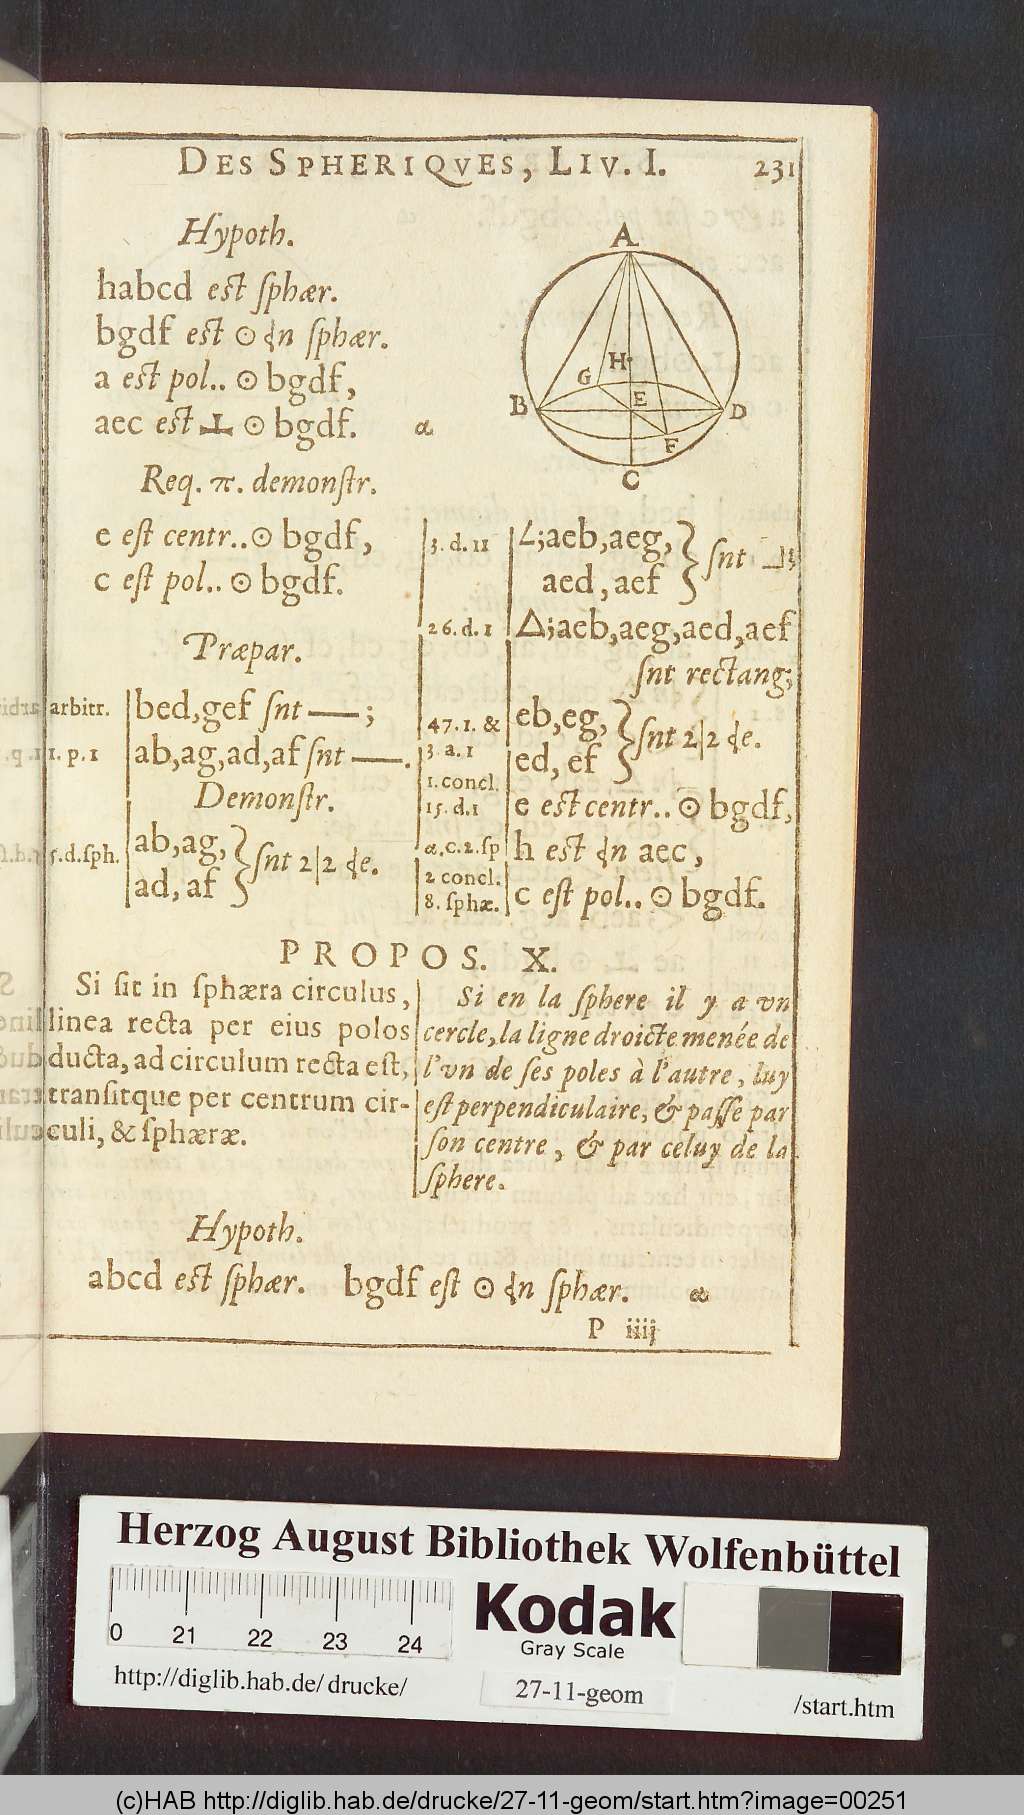 DES SPHERIQVES, LIV. I. 231
Hypoth.
habcd est sphær.
bgdf est ⊙ ɖn sphær.
a est pol.. ⊙ bgdf,
aec est ⊥ ⊙ bgdf. α
Req. π. demonstr.
e est centr..⊙ bgdf,
c est pol.. ⊙ bgdf.
Præpar.
arbitr. bed,gef snt — ;
1. p. 1 ab,ag,ad,af snt — .
Demonstr.
5.d.sph. ab,ag, } snt 2|2 ɖe.
ad, af
A
H
G
B
E
D
F
C
3. d. 11 ∠;aeb,aeg, } snt ⅃;
aed, aef
26. d. 1 △;aeb,aeg,aed,aef
snt rectang;
47. 1. & eb,eg, } snt 2|2 ɖe.
3. a. 1 ed, ef
1. concl.
15. d.1 e est centr.. ⊙ bgdf,
α.c.2.sp h est ɖn aec,
2 concl.
8. sphæ. c est pol.. ⊙ bgdf.
PROPOS. X.
Si sit in sphæra circulus,
linea recta per eius polos
ducta, ad circulum recta est,
transitque per centrum cir-
culi, & sphæræ.
Si en la sphere il y a vn
cercle, la ligne droicte menée de
l'vn de ses poles à l'autre, luy
est perpendiculaire, & passe par
son centre, & par celuy de la
sphere.
Hypoth.
abcd est sphær. bgdf est ⊙ ɖn sphær. α
P iiij
Herzog August Bibliothek Wolfenbüttel
0 21 22 23 24
Kodak
Gray Scale
http://diglib.hab.de/drucke/ 27-11-geom /start.htm
(c)HAB http://diglib.hab.de/drucke/27-11-geom/start.htm?image=00251